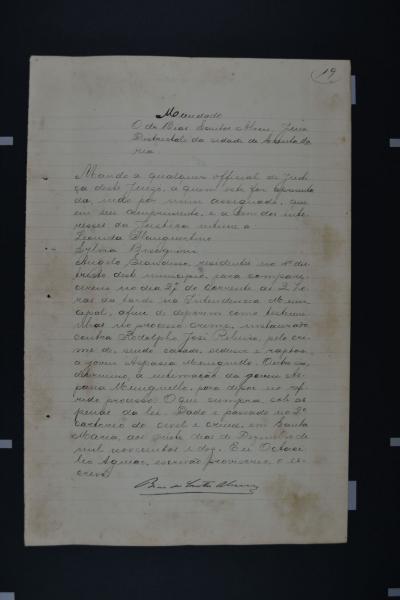 19
Mandado
O dr Bras Santos Abreu, Juiz
Districtal da cidade de Santa Ma
ria
Mando a qualquer official de Justi
ça deste Juizo, a quem este for apresenta
do, indo por mim assignado, que
em seu cumprimento, e a bem dos inte
resses da Justiça intime a
Leonida
Sylvia
Angelo residentes no 4º dis
tricto deste municipio, para compare
cerem no dia 27 do corrente as 2 ho
ras da tarde na Intendencia Muni
cipal, afim de deporem como testemu
nhas no processo crime, instaurado
contra Rodolpho José pelo cri
me de, sendo casado, seduzir e raptar
a jovem Aspasia Menguello.
a intimação da jovem As
pasia Menguello, para depor no refe
rido processo. O que cumpra, sob as
penas da lei. Dado e passado no 2º
cartorio do civel e crime, em Santa
Maria, aos dias de Dezembro de
mil novecentos e dez. Eu Octaci
lio Aguiar, escrivão provisorio, o es
crevi
Bras dos Santos Abreu